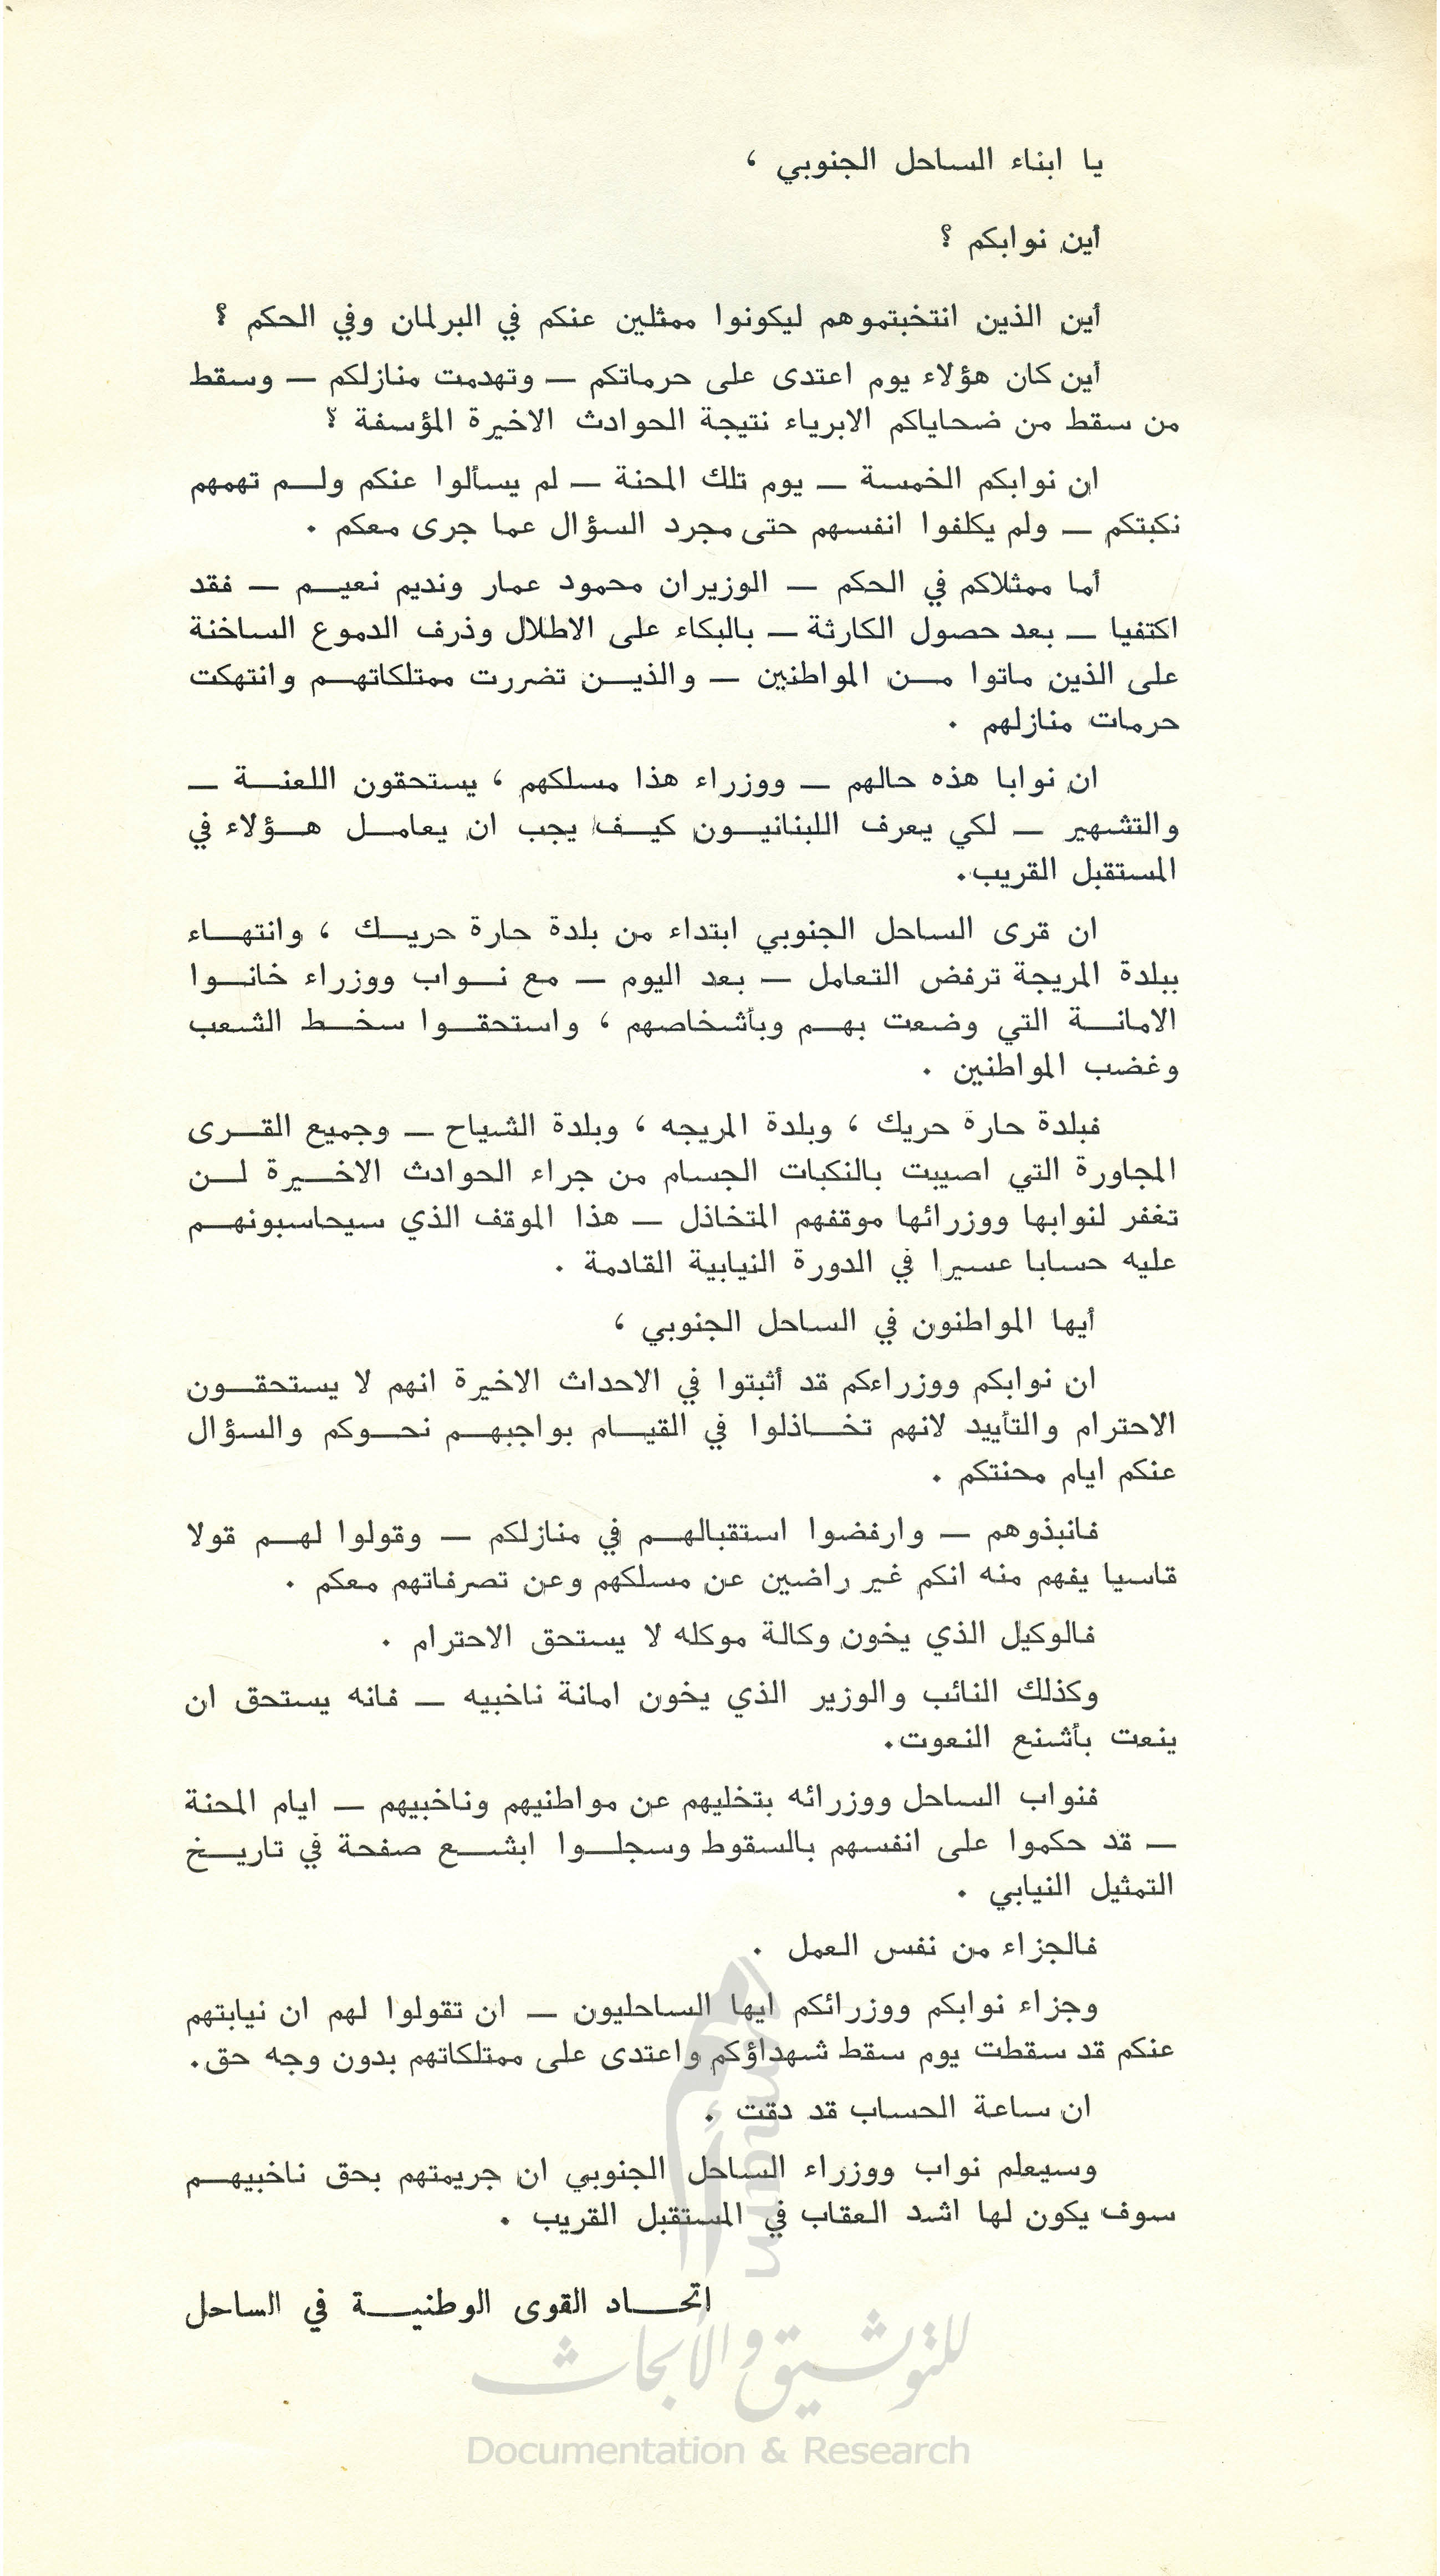 يا ابناء الساحل الجنوبي ،
أين نوابكم ؟
أين الذين انتخبتموهم ليكونوا ممثلين عنكم في البرلمان وفي الحكم ؟
أين كان هؤلاء يوم اعتدى على حرماتكم — وتهدمت منازلكم — وسقط
من سقط من ضحاياكم الابرياء نتيجة الحوادث الاخيرة المؤسفة ؟
ان نوابكم الخمسة — يوم تلك المحنة — لم يسألوا عنكم ولم تهمهم
نكبتكم — ولم يكلفوا انفسهم حتى مجرد السؤال عما جرى معكم .
أما ممثلاكم في الحكم — الوزيران محمود عمار ونديم نعيم — فقد
اكتفيا — بعد حصول الكارثة — بالبكاء على الاطلال وذرف الدموع الساخنة
على الذين ماتوا من المواطنين — والذين تضررت ممتلكاتهم وانتهكت
حرمات منازلهم .
ان نوابا هذه حالهم — ووزراء هذا مسلكهم ، يستحقون اللعنة —
والتشهير — لكي يعرف اللبنانيون كيف يجب ان يعامل هؤلاء في
المستقبل القريب.
ان قرى الساحل الجنوبي ابتداء من بلدة حارة حريك ، وانتهاء
ببلدة المريجة ترفض التعامل — بعد اليوم — مع نواب ووزراء خانوا
الامانة التي وضعت بهم وبأشخاصهم ، واستحقوا سخط الشعب
وغضب المواطنين .
فبلدة حارة حريك ، وبلدة المريجه ، وبلدة الشياح — وجميع القرى
المجاورة التي اصيبت بالنكبات الجسام من جراء الحوادث الاخيرة لن
تغفر لنوابها ووزرائها موقفهم المتخاذل — هذا الموقف الذي سيحاسبونهم
عليه حسابا عسيرا في الدورة النيابية القادمة .
أيها المواطنون في الساحل الجنوبي ،
ان نوابكم ووزراءكم قد أثبتوا في الاحداث الاخيرة انهم لا يستحقون
الاحترام والتأييد لانهم تخاذلوا في القيام بواجبهم نحوكم والسؤال
عنكم ايام محنتكم .
فانبذوهم — وارفضوا استقبالهم في منازلكم — وقولوا لهم قولا
قاسيا يفهم منه انكم غير راضين عن مسلكهم وعن تصرفاتهم معكم .
فالوكيل الذي يخون وكالة موكله لا يستحق الاحترام .
وكذلك النائب والوزير الذي يخون امانة ناخبيه — فانه يستحق ان
ينعت بأشنع النعوت.
فنواب الساحل ووزرائه بتخليهم عن مواطنيهم وناخبيهم — ايام المحنة
— قد حكموا على انفسهم بالسقوط وسجلوا ابشع صفحة في تاريخ
التمثيل النيابي .
فالجزاء من نفس العمل .
وجزاء نوابكم ووزرائكم ايها الساحليون — ان تقولوا لهم ان نيابتهم
عنكم قد سقطت يوم سقط شهداؤكم واعتدى على ممتلكاتهم بدون وجه حق.
ان ساعة الحساب قد دقت .
وسيعلم نواب ووزراء الساحل الجنوبي ان جريمتهم بحق ناخبيهم
سوف يكون لها اشد العقاب في المستقبل القريب .
اتحاد القوى الوطنية في الساحل
أمم
umam
للتوثيق والأبحاث
Documentation & Research